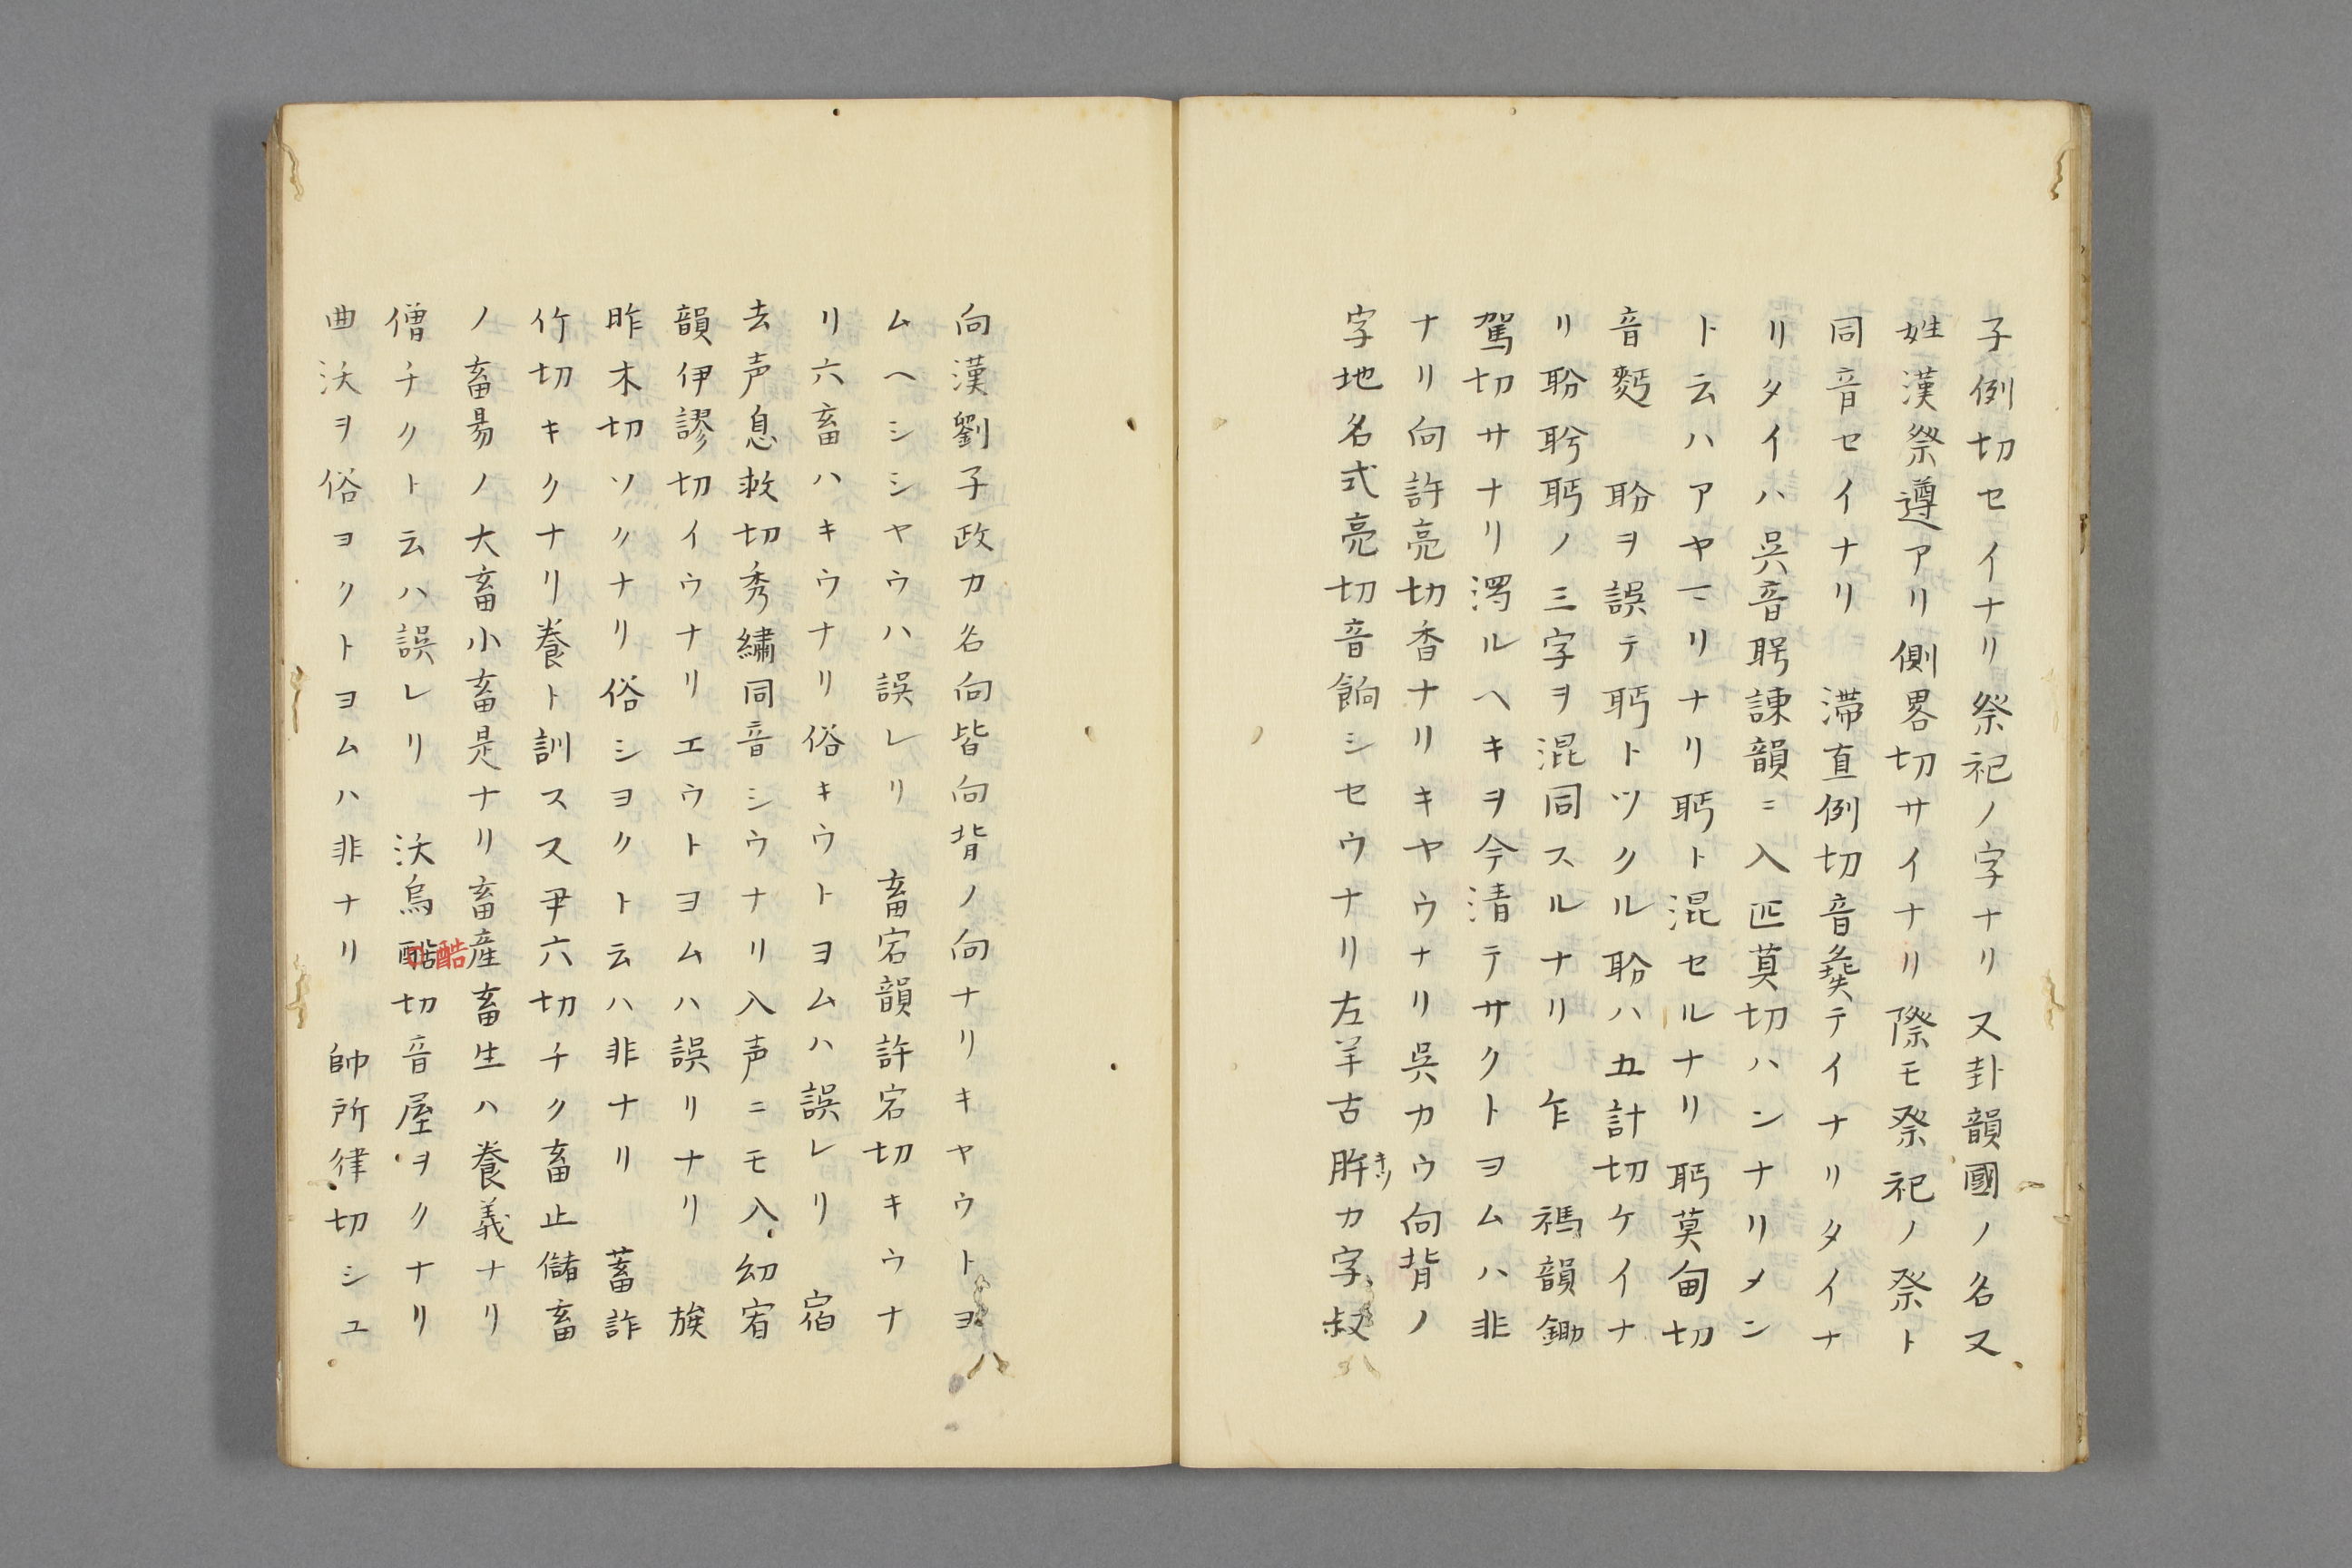 子例切セイナリ祭祀ノ字ナリ又卦韻國ノ名又
姓漢祭遵アリ側畧切サイナリ際モ祭祀ノ祭ト
同音セイナリ 滞直例切音彘テイナリタイナ
リタイハ呉音眄諌韻ニ入匹莫切ハンナリメン
ト云ハアヤマリナリ眄ト混セルナリ眄莫甸切
音麪 盻ヲ誤テ眄トツクル盻ハ五計切ケイナ
リ盻盻眄ノ三字ヲ混同スルナリ 乍 禡韻鋤
駕切サナリ濁ルヘキヲ今清テサクトヨムハ非
ナリ向許亮切香ナリキヤウナリ呉カウ向背ノ
字地名式亮切音餉シセウナリ左羊古肸カ字叔
キツ
向漢劉子政カ名向皆向背ノ向ナリキヤウトヨ
ムヘシシヤウハ誤レリ 畜宕韻許宕切キウナ
リ六畜ハキウナリ俗キウトヨムハ誤レリ 宿
去声息救切秀繡同音シウナリ入声ニモ入幼宥
韻伊謬切イウナリエウトヨムハ誤リナリ 族
昨木切ソクナリ俗シヨクト云ハ非ナリ 蓄詐
竹切キクナリ養ト訓ス又丑六切チク畜止儲畜
ノ畜昜ノ大畜小畜是ナリ畜産畜生ハ養義ナリ
僧チクト云ハ誤レリ 沃烏酷切音屋ヲクナリ
酷
曲沃ヲ俗ヨクトヨムハ非ナリ 帥所律切シユ